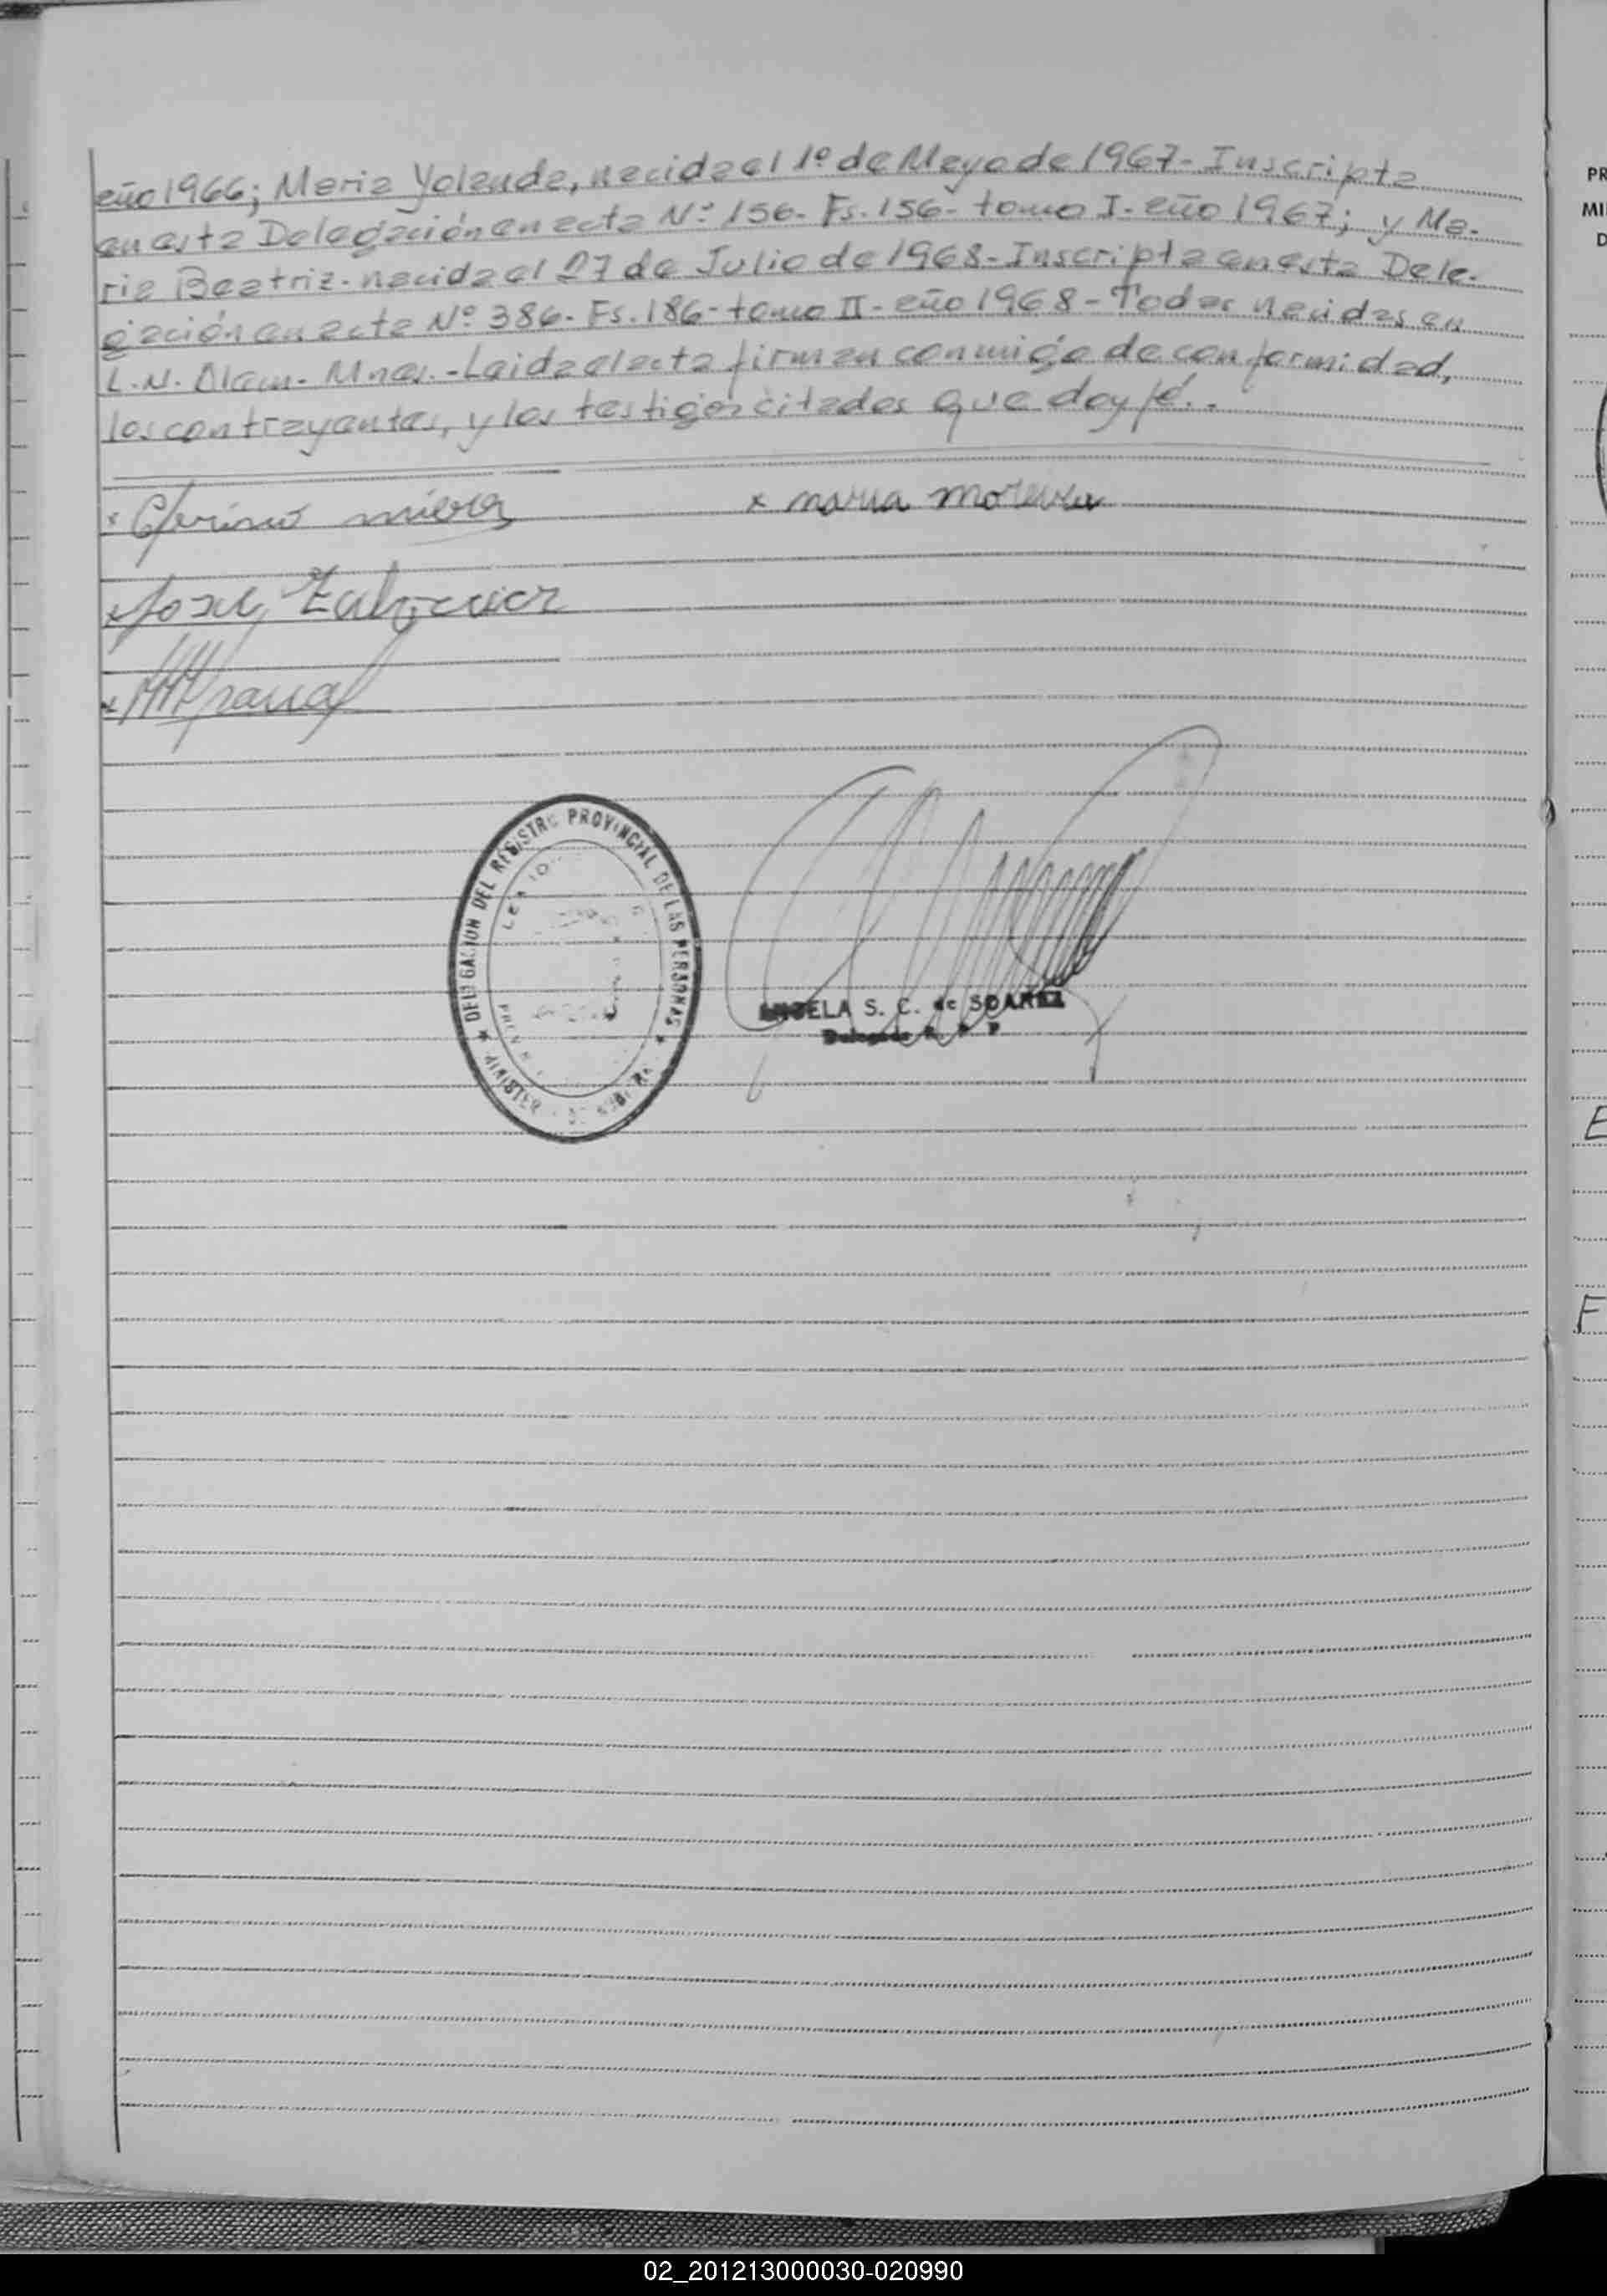 año 1966; Maria Yolanda, nacida el 1º de Mayo de 1967- Inscripta
en esta Delegación en acta Nº 156- Fs. 156- tomo I- año 1967; y Ma-
ria Beatriz- nacida el 27 de Julio de 1968- Inscripta en esta Dele-
gación en acta Nº 386- Fs. 186- tomo II- año 1968- Todas nacidas en
L.N. Alem- Mnes.- Leida el acta firman conmigo de conformidad,
los contrayentes, y los testigos citados que doy fé.-
x maria moreira
x Jose
DELEGACION DEL REGISTRO PROVINCIAL DE LAS PERSONAS
ANGELA S. C. de SOAREZ
PR
MI
D
E
F
02_201213000030-020990